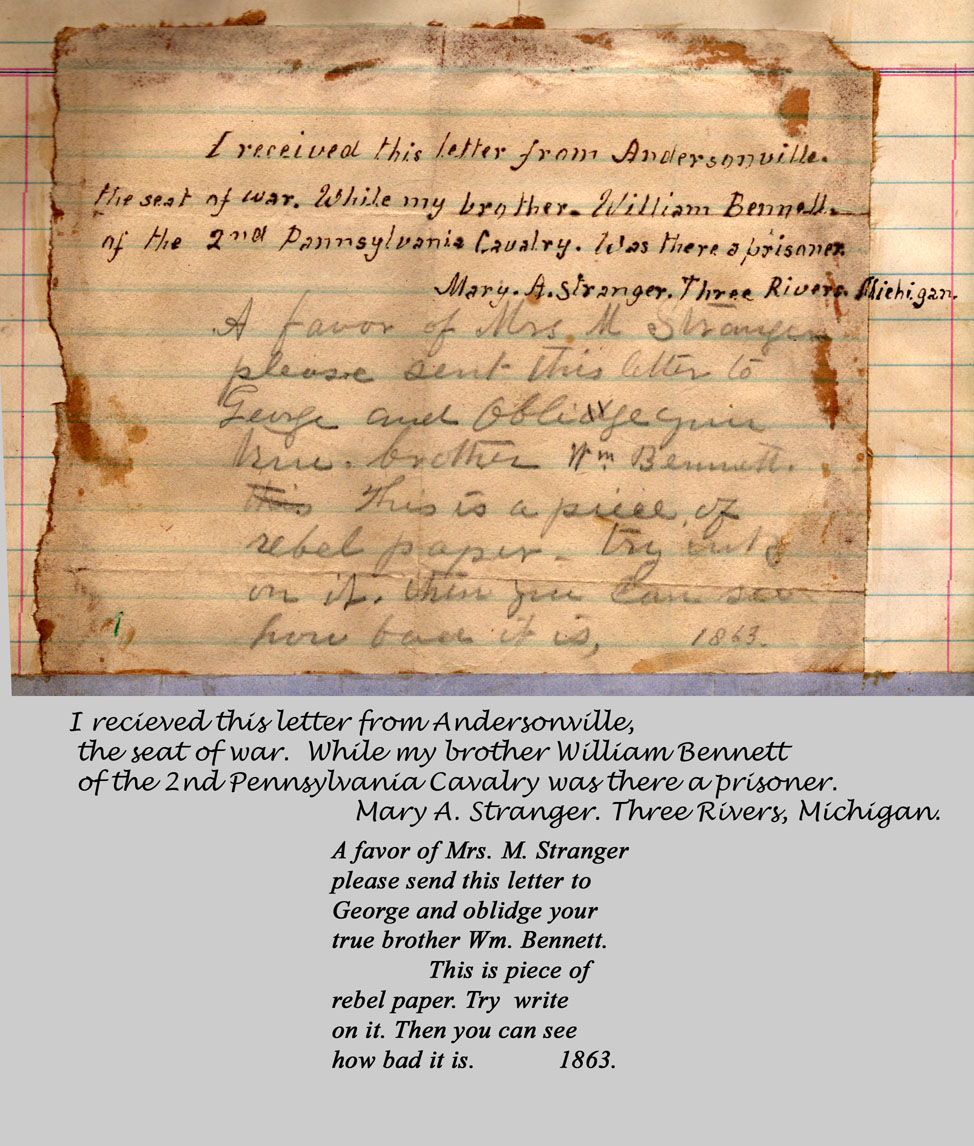 I received this letter from Andersonville.
the seat of war. While my brother. William Bennett.
of the 2nd Pannsylvania Cavalry. Was there a prisoner.
Mary. A. Stranger. Three Rivers. Michigan.
A favor of Mrs. M Stranger
please sent this letter to
George and Oblidge your
true. brother Wm Bennett.
this This is a piece of
rebel paper. try
on it. then you can see
how bad it is, 1863.
I recieved this letter from Andersonville,
the seat of war. While my brother William Bennett
of the 2nd Pennsylvania Cavalry was there a prisoner.
Mary A. Stranger. Three Rivers, Michigan.
A favor of Mrs. M. Stranger
please send this letter to
George and oblidge your
true brother Wm. Bennett.
This is piece of
rebel paper. Try write
on it. Then you can see
how bad it is. 1863.